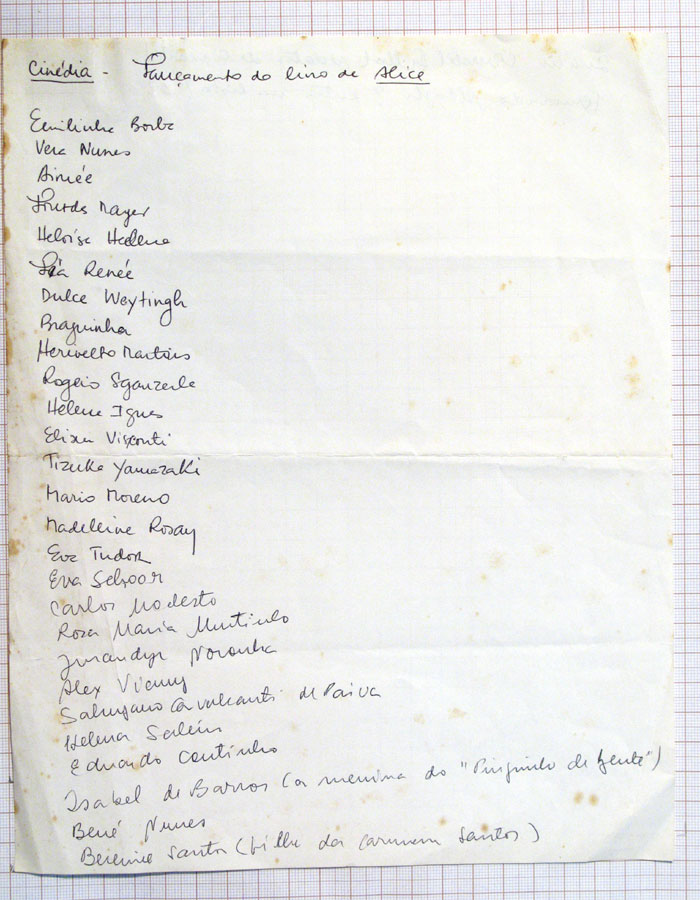 Cinédia - Lançamento do livro de Alice
Emilinha Borba
Vera Nunes
Aimée
Lourdes Mayer
Heloísa Helena
Léa Renée
Dulce Weytingh
Braguinha
Herivelto Martins
Rogério Sganzerla
Helena Ignes
Eliseu Visconti
Tizuka Yamazaki
Mario Moreno
Madeleine Rosay
Eva Tudor
Eva Schoor
Carlos Modesto
Rosa Maria Murtinho
Jurandyr Noronha
Alex Viany
Salvyano Cavalcanti de Paiva
Helena Salem
Eduardo Coutinho
Isabel de Barros (a menina do "Pinguinho de Gente")
Bené Nunes
Berenice Santos (filha da Carmem Santos)